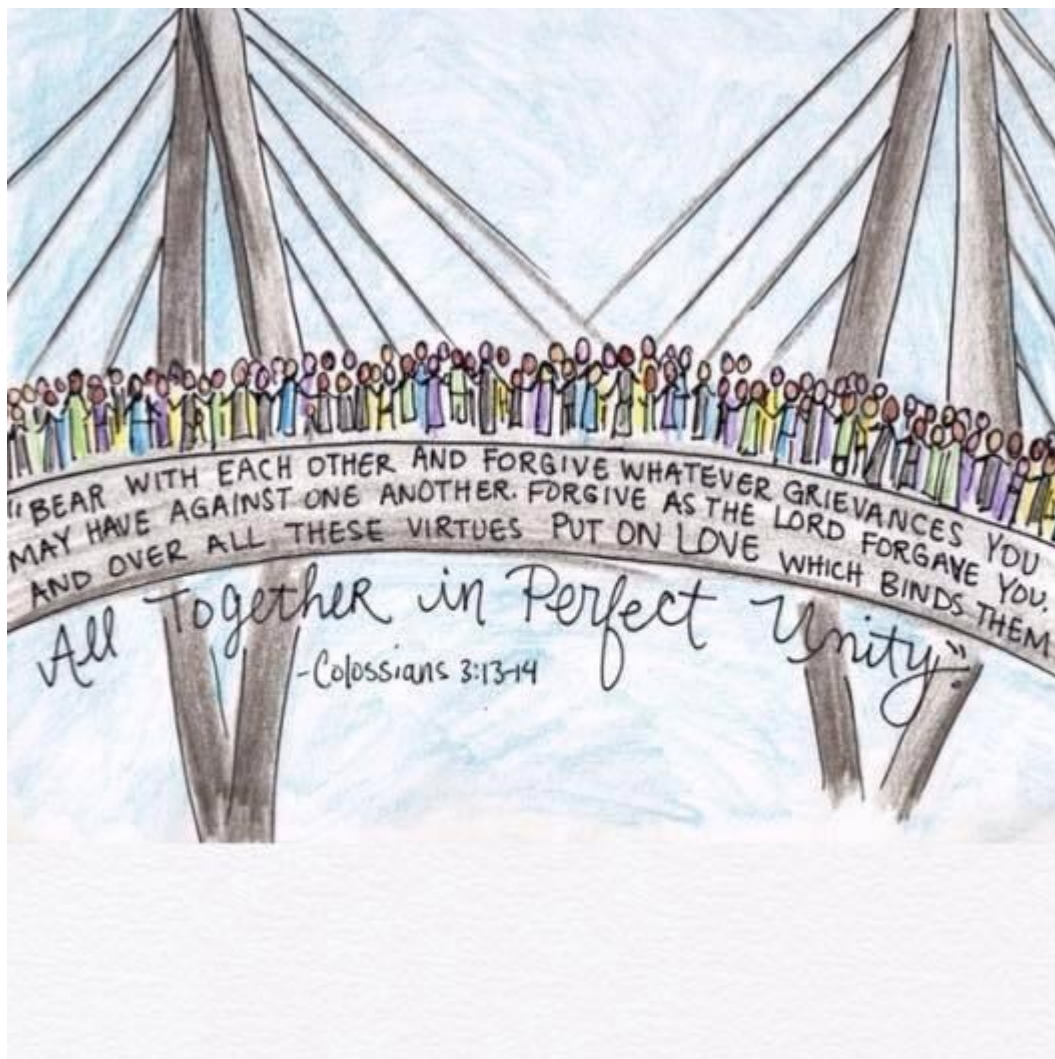 "BEAR WITH EACH OTHER AND FORGIVE WHATEVER GRIEVANCES YOU
MAY HAVE AGAINST ONE ANOTHER. FORGIVE AS THE LORD FORGAVE YOU.
AND OVER ALL THESE VIRTUES PUT ON LOVE WHICH BINDS THEM
All Together in Perfect Unity."
-Colossians 3:13-14